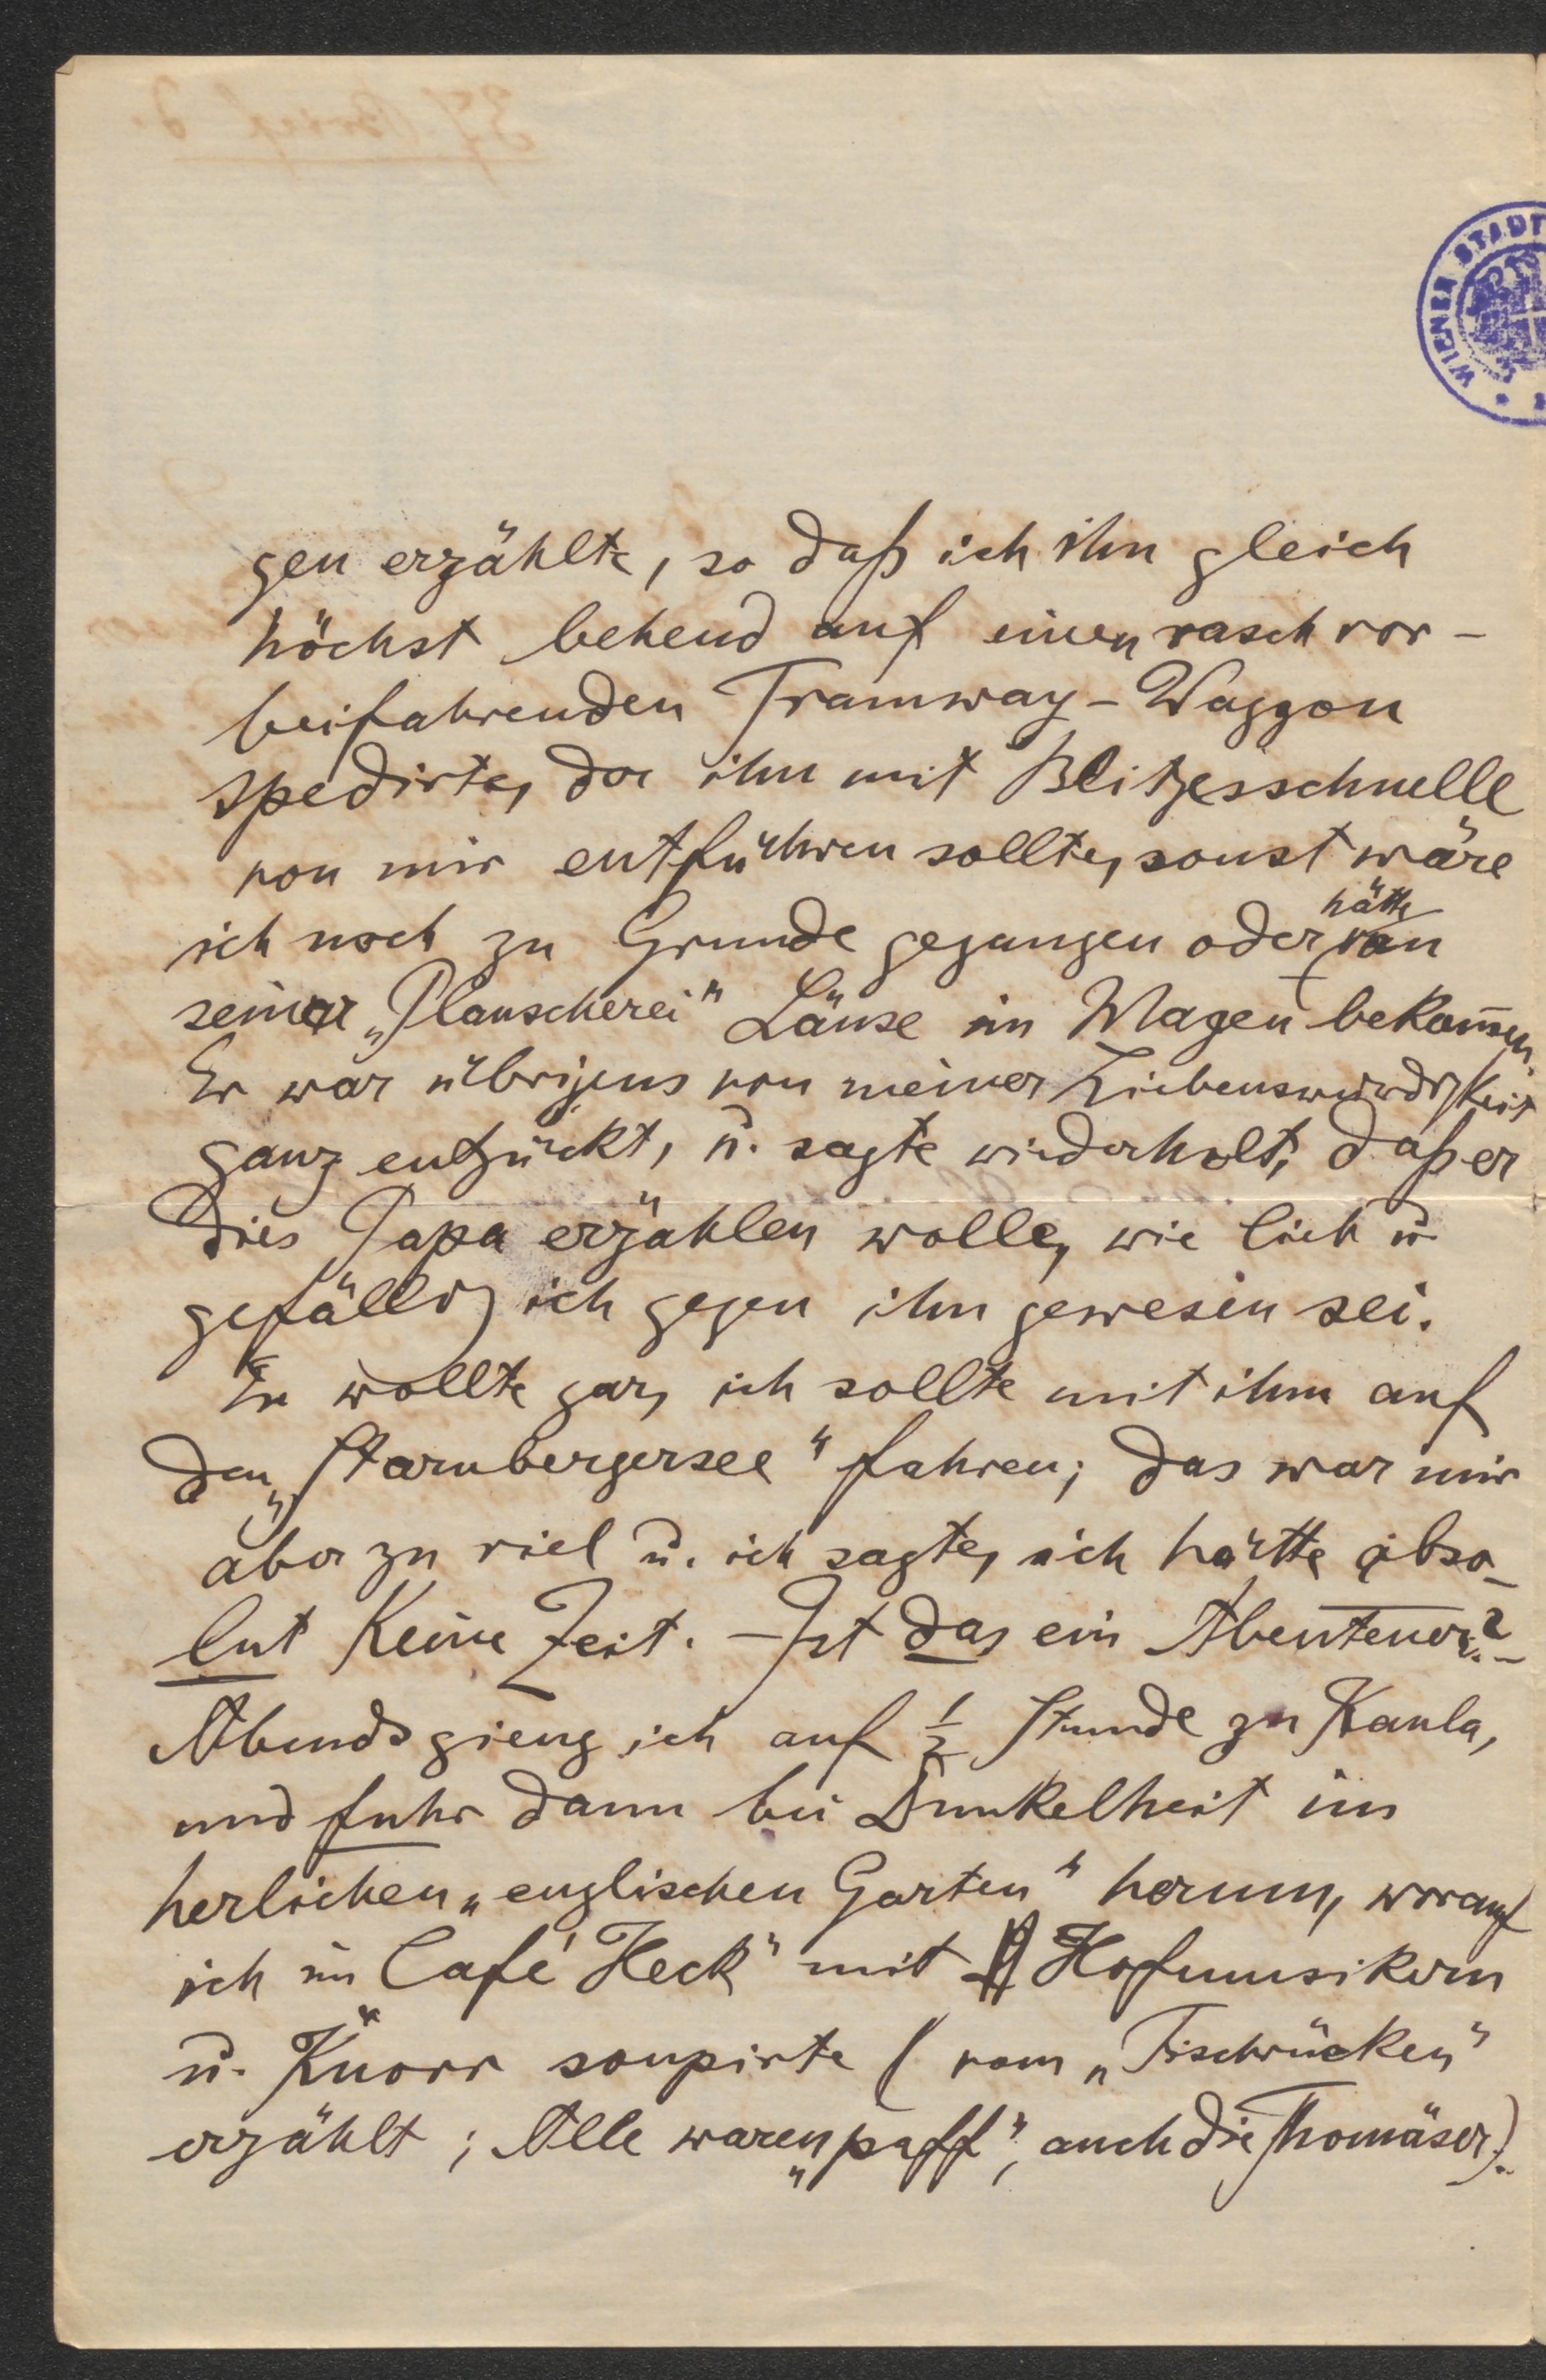 WIENER STADT
gen erzählte, so daß ich ihn gleich
höchst behend auf einen rasch vor-
beifahrenden Tramway-Waggon
spedirte, der ihn mit Blitzesschnelle
von mir entführen sollte, sonst wäre
hätte
ich noch zu Grunde gegangen oder von
seiner „Plauscherei" Läuse im Magen bekom̅en.
Er war übrigens von meiner Liebenswürdigkeit
ganz entzückt, u. sagte wiederholt, daß er
dies Papa erzählen wolle, wie lieb u.
gefällig ich gegen ihn gewesen sei.
Er wollte gar, ich sollte mit ihm auf
den „Starnbergersee" fahren; das war mir
aber zu viel u. ich sagte, ich hätte abso-
lut keine Zeit. - Ist das ein Abenteuer? -
Abends gieng ich auf ½ Stunde zu Kaula,
und fuhr dann bei Dunkelheit im
herlichen „englischen Garten" herum, worauf
ich im Café Heck" mit Hofmusikern
u. Knorr soupirte (vom „Fischrücken"
erzählt; Alle waren „paff", auch die Thomäser).